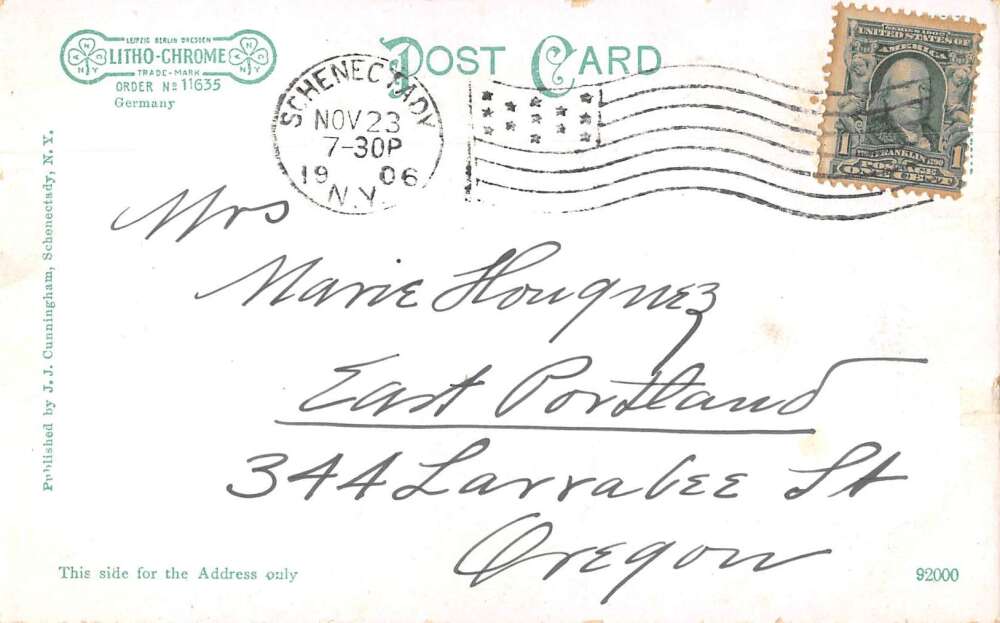 LEIPZIG BERLIN DRESDEN
LITHO-CHROME
TRADE-MARK
ORDER No 11635
Germany
POST CARD
SCHENECTADY
NOV 23
7-30P
1906
N.Y.
SERIES 1902
UNITED STATES OF
AMERICA
1 FRANKLIN 1790 1
POSTAGE
ONE CENT
Published by J. J. Cunningham, Schenectady, N. Y.
Mrs
Marie Houquez
East Portland
344 Larrabee St
Oregon
This side for the Address only
92000